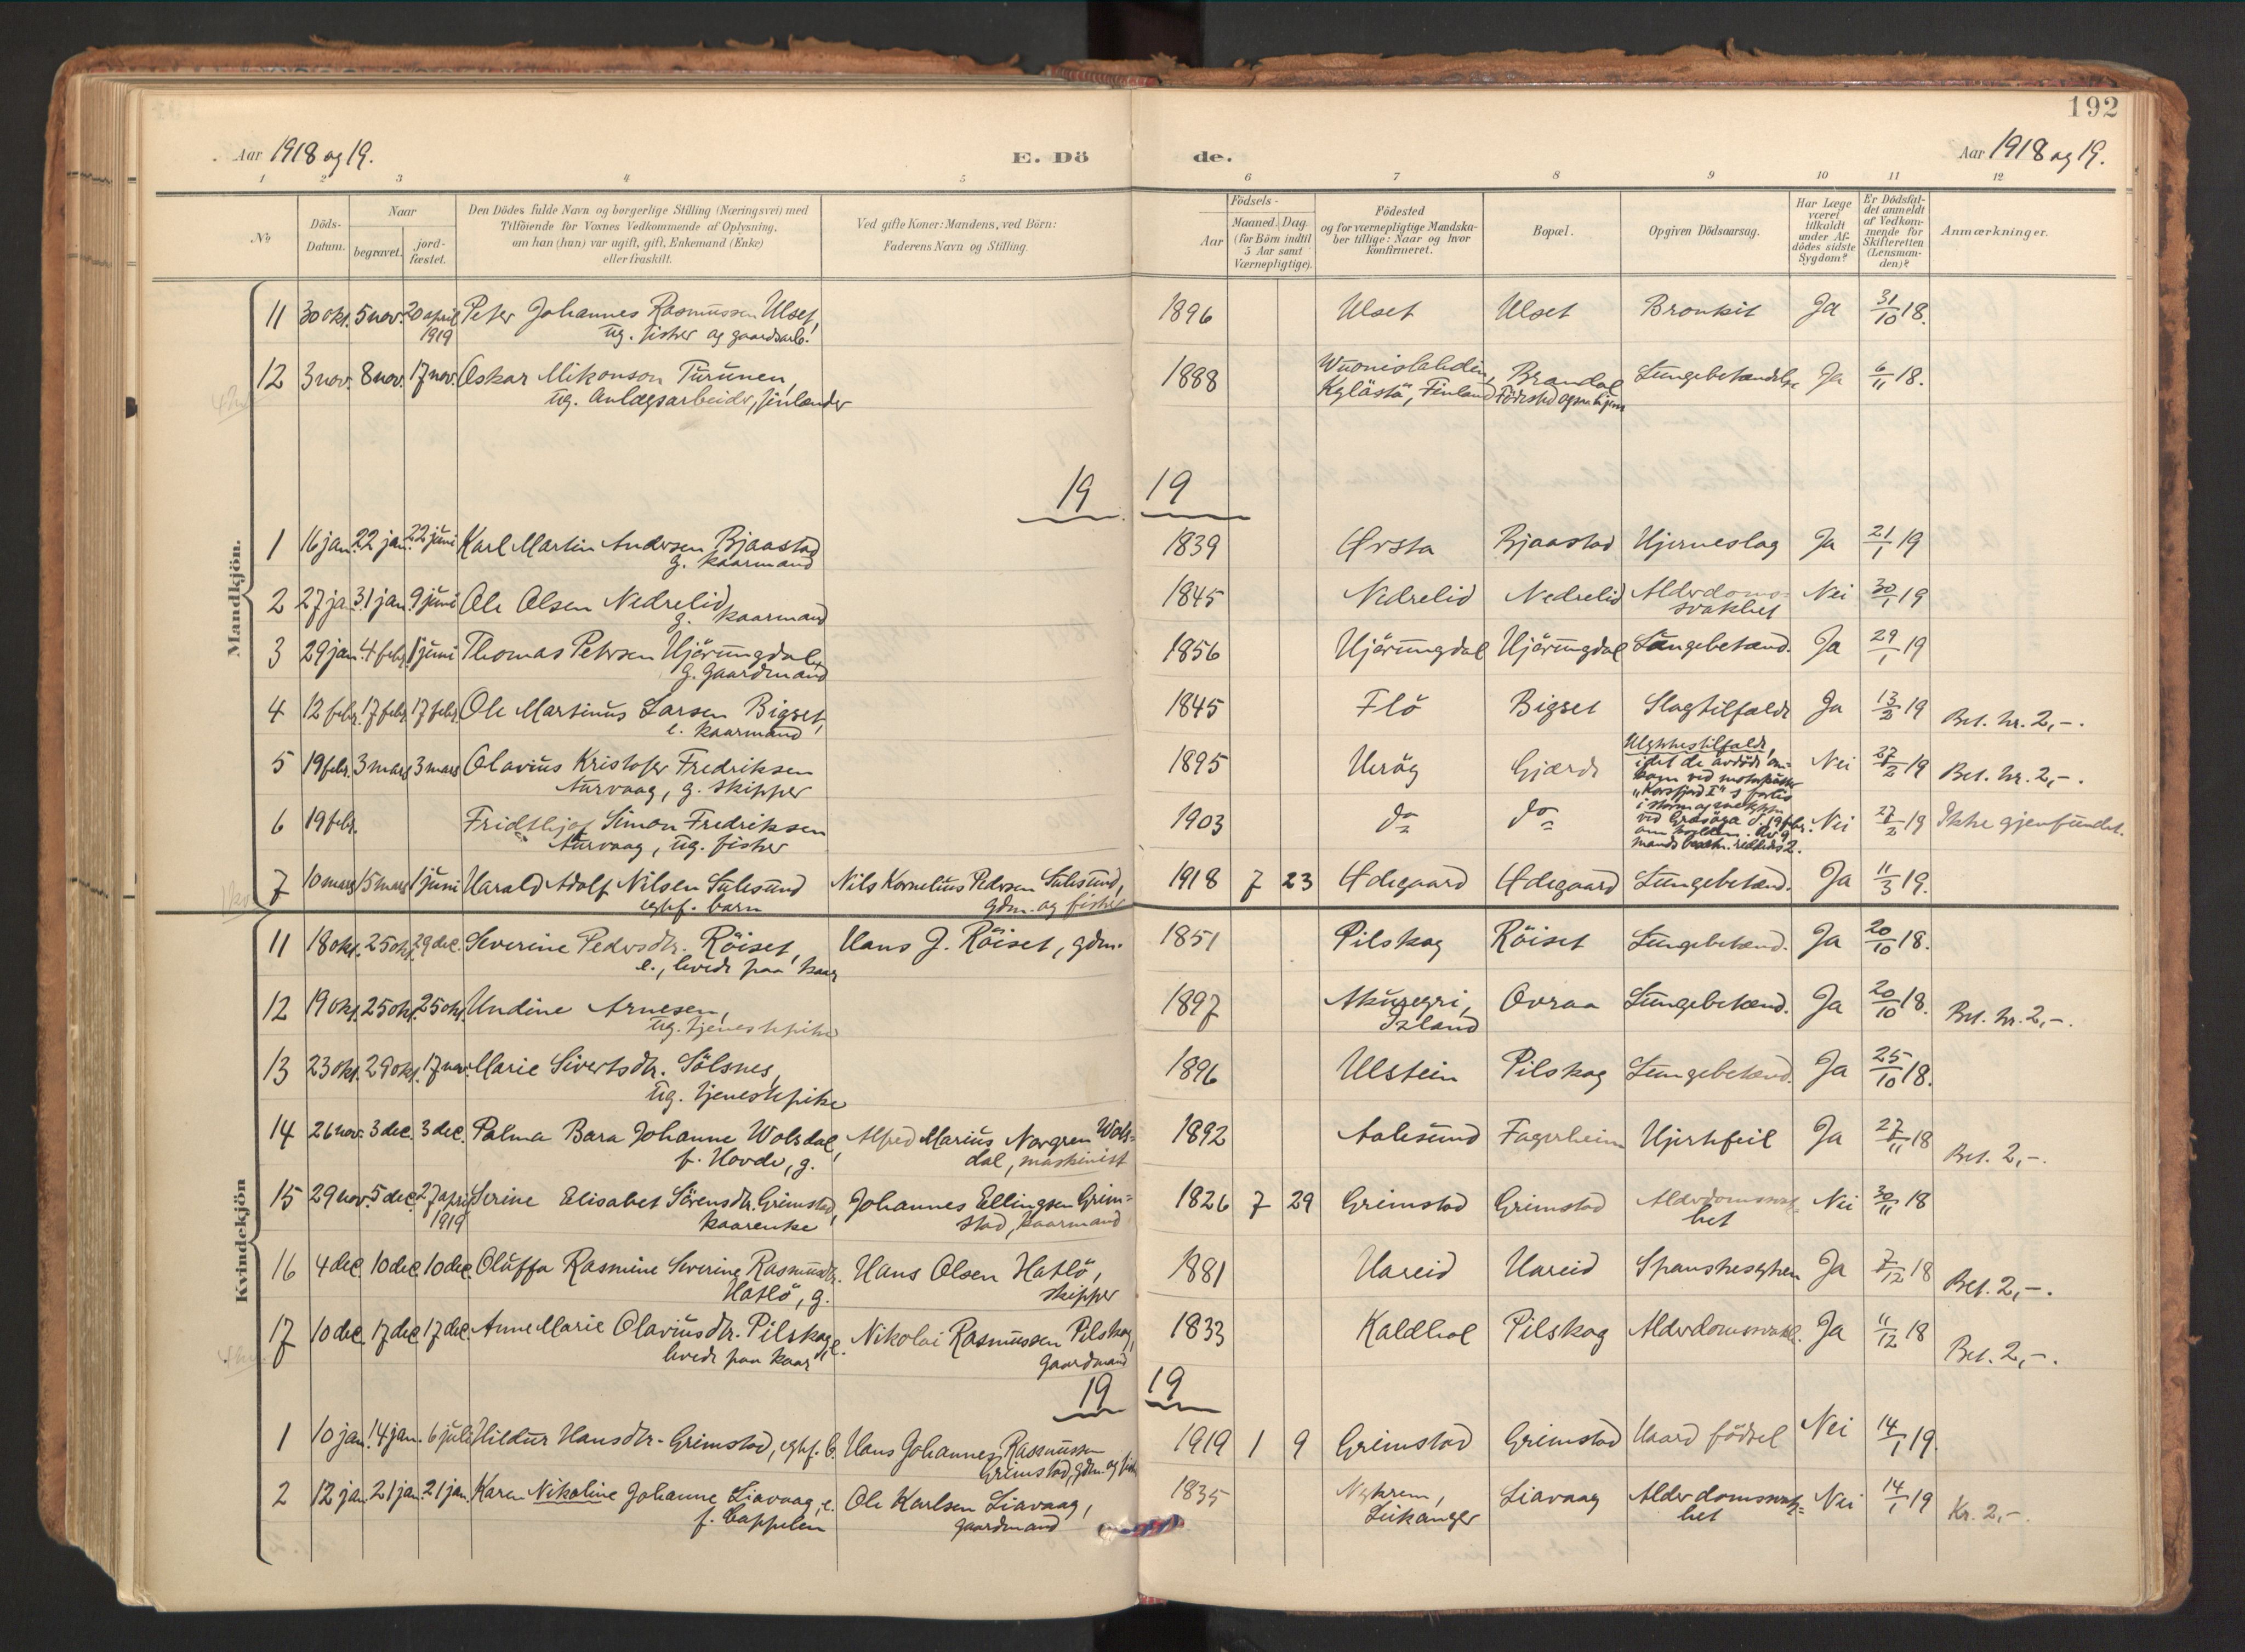 192
Aar 1918 og 19.
E. Dö
de.
Aar 1918 og 19.
1 2 3 4 5 6 7 8 9 10 11 12
No
Döds-Datum.
Naar
begravet.
jord-fæstet.
Den Dödes fulde Navn og borgerlige Stilling (Næringsvei) med
Tilföiende for Voxnes Vedkommende af Oplysning,
om han (hun) var ugift, gift, Enkemand (Enke)
eller fraskilt.
Ved gifte Koner: Mandens, ved Börn:
Faderens Navn og Stilling.
Födsels-
Aar
Maaned. Dag.
(for Börn indtil
5 Aar samt
Værnepligtige).
Födested
og for værnepligtige Mandska-
ber tillige: Naar og hvor
Konfirmeret.
Bopæl.
Opgiven Dödsaarsag.
Har Læge
været
tilkaldt
under Af-
dödes sidste
Sygdom?
Er Dödsfal-
det anmeldt
af Vedkom-
mende for
Skifteretten
(Lensman-
den)?
Anmærkninger.
Mandkjön.
11 30 okt. 5 nov. 20 april Peter Johannes Rasmussen Ulset, 1896 Ulset Ulset Bronkit Ja 31/10 18.
1919 ug. fisker og gaardsarb.
12 3 nov. 8 nov. 17 nov. Oskar Mikonson Turunen, 1888 Wuonislahden, Brandal Lungebetændelse Ja 6/11 18.
ug. Anlægsarbeider, finlænder Kylästä, Finland
19 19
1 16 jan. 22 jan. 22 juni Karl Martin Andersen Bjaastad 1839 Ørsta Bjaastad Hjerneslag Ja 21/1 19
g. kaarmand
2 27 ja. 31 jan. 9 juni Ole Olsen Nedrelid, 1845 Nedrelid Nedrelid Alderdoms- Nei 30/1 19
g. kaarmand svakhet
3 29 jan. 4 febr. 1 juni Thomas Petersen Hjörungdal, 1856 Hjörungdal Hjörungdal Lungebetænd. Ja 29/1 19
g. gaardmand
4 12 febr. 17 febr. 17 febr. Ole Martinus Larsen Bigset, 1845 Flö Bigset Slagtilfælde Ja 13/2 19 Bet. kr. 2,-.
e. kaarmand
5 19 febr. 3 mars 3 mars Olavius Kristofer Fredriksen 1895 Heröy Gjærde Ulykkestilfælde, Nei 27/2 19 Bet. kr. 2,-.
Aurvaag, g. skipper idet de avdöde om-
kom ved motorkutter
"Korsfjord I"s forlis
6 19 febr. Fridthjof Simon Fredriksen 1903 do do Nei 27/2 19 Ikke gjenfundet.
Aurvaag, ug. fisker
7 10 mars 15 mars 1 juni Harald Adolf Nilsen Sulesund Nils Kornelius Pedersen Sulesund, 1918 7 23 Ødegaard Ødegaard Lungebetænd. Ja 11/3 19.
egtef. barn gdm. og fisker
Kvindekjön
11 18 okt. 25 okt. 29 dec. Severine Pedersdtr. Röiset, Hans J. Röiset, gdm. 1851 Pilskog Röiset Lungebetænd. Ja 20/10 18.
e., levede paa kaar
12 19 okt. 25 okt. 25 okt. Undine Arnesen, 1897 Akureyri, Ovraa Lungebetænd. Ja 20/10 18. Bet. kr. 2,-.
ug. tjenestepike Island
13 23 okt. 29 okt. 17 nov. Marie Sivertsdtr. Sölsnes, 1896 Ulstein Pilskog Lungebetænd. Ja 25/10 18.
ug. tjenestepike
14 26 nov. 3 dec. 3 dec. Palma Bara Johanne Wolsdal, Alfred Marius Norgren Wols- 1892 Aalesund Fagerheim Hjertefeil Ja 27/11 18 Bet. 2,-.
f. Hovde, g. dal, maskinist
15 29 nov. 5 dec. 27 april Serine Elisabet Sörensdtr. Grimstad, Johannes Ellingsen Grim- 1826 7 29 Grimstad Grimstad Alderdomssvak- Nei 30/11 18
1919 kaarenke stad, kaarmand het
16 4 dec. 10 dec. 10 dec. Oluffa Rasmine Severine Rasmusdtr. Hans Olsen Hatlö, 1881 Hareid Hareid Spanskesyken Ja 7/12 18 Bet. 2,-.
Hatlö, g. skipper
17 10 dec. 17 dec. 17 dec. Anne Marie Olaviusdtr. Pilskog, e. Nikolai Rasmussen Pilskog, 1833 Kaldhol Pilskog Alderdomssvakh. Ja 11/12 18 Bet. 2,-.
levede paa kaar gaardmand
19 19
1 10 jan. 14 jan. 6 juli Hildur Hansdtr. Grimstad, egtef. b. Hans Johannes Rasmussen 1919 1 9 Grimstad Grimstad Haard födsel Nei 14/1 19.
Grimstad, gdm. og fisk
2 12 jan. 21 jan. 21 jan. Karen Nikoline Johanne Liavaag, e. Ole Karlsen Liavaag, 1835 Nykrem, Liavaag Alderdomssvak- Nei 14/1 19 Kr. 2,-.
f. Cappelen gaardmand Leikanger het